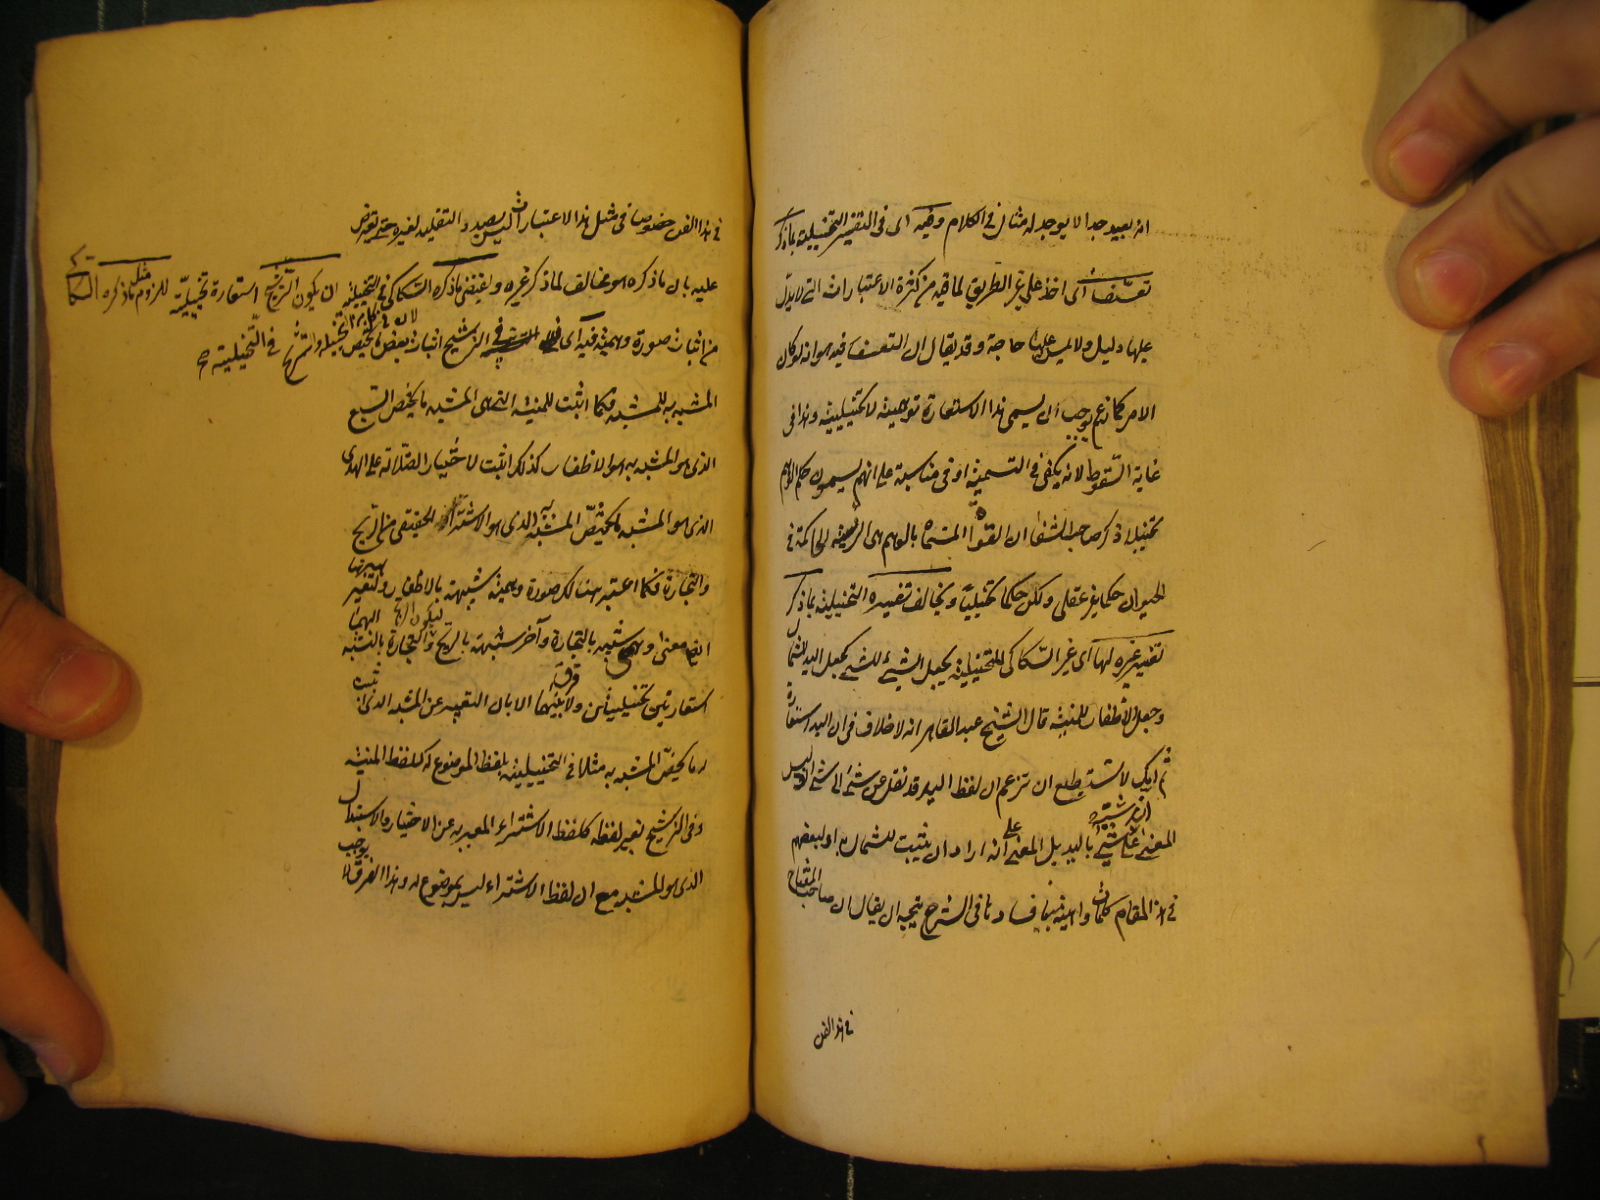 انه بعيد جدا لا يوجد له مثال في الكلام وفيه اى فى التفسير التخييلية بما ذكر
تعسف اى اخذ على غير الطريق لما فيه من كثرة الاعتبارات التى لا يدل
عليها دليل ولا يمس عليها حاجة وقد يقال ان التعسف فيه هو انه لو كان
الامر كما زعم لوجب ان يسمى هذا الاستعارة توهمية لا تخييلية وهذا فى
غاية السقوط لانه يكفى فى التسمية ادنى مناسبة على انهم يسمون حكم الوهم
تخييلا ذكر صاحب الشفا ان القوة المسماة بالوهم هى الرئيسة الحاكمة فى
الحيوان حكما غير عقلى ولكن حكما تخييليا ويخالف تفسيره التخييلية بما ذكر
تفسير غيره لها اى غير السكاكى للتخييلية بجعل الشئ للشئ كجعل اليد للشمال
وجعل الاظفار للمنية قال الشيخ عبد القاهر انه لا خلاف فى ان اليد استعارة
ثم انك لا تستطيع ان تزعم ان لفظ اليد قد نقل عن شئ الى شئ اذ ليس
المعنى على انه شبه شيئا باليد بل المعنى على انه اراد ان يثبت للشمال يدا ولبعضهم
فى هذا المقام كلمات واهية بينا فسادها فى الشرح نعم يتجه ان يقال ان صاحب المفتاح
فى هذا الفن
فى هذا الفن خصوصا فى مثل هذا الاعتبارات ليس بصدد التقليد لغيره حتى يعترض
عليه بان ما ذكره هو مخالف لما ذكر غيره ويقتضى ما ذكره السكاكى فى التخييلية ان يكون الترشيح استعارة تخييلية للزوم مثل ما ذكره السكاكى
فى التخييلية صح
من اثبات صورة وهمية فيه اى فى الترشيح لان فى كل من التخييلية والترشيح اثبات بعض ما يخص
المشبه به للمشبه فكما اثبت للمنية التى هى المشبه ما يخص السبع
الذى هو المشبه به هو الاظفار كذلك اثبت لاختيار الضلالة على الهدى
الذى هو المشبه ما يخص المشبه به الذى هو الاشتراء الحقيقى من الربح
والتجارة فكما اعتبر هنالك صورة وهمية شبيهة بالاظفار فليعتبر ههنا
ايضا معنى وهمى شبيه بالتجارة وآخر شبيه بالربح ليكون الربح والتجارة بالنسبة اليهما
استعارتين تخييليتين ولا فرق بينهما الا بان التعبير عن المشبه الذى اثبت
له ما يخص المشبه به مثلا فى التخييلية بلفظ الموضوع له كلفظ المنية
وفى الترشيح بغير لفظه كلفظ الاشتراء المعبر به عن الاختيار والاستبدال
الذى هو المشبه مع ان لفظ الاشتراء ليس بموضوع له وهذا الفرق لا يوجب